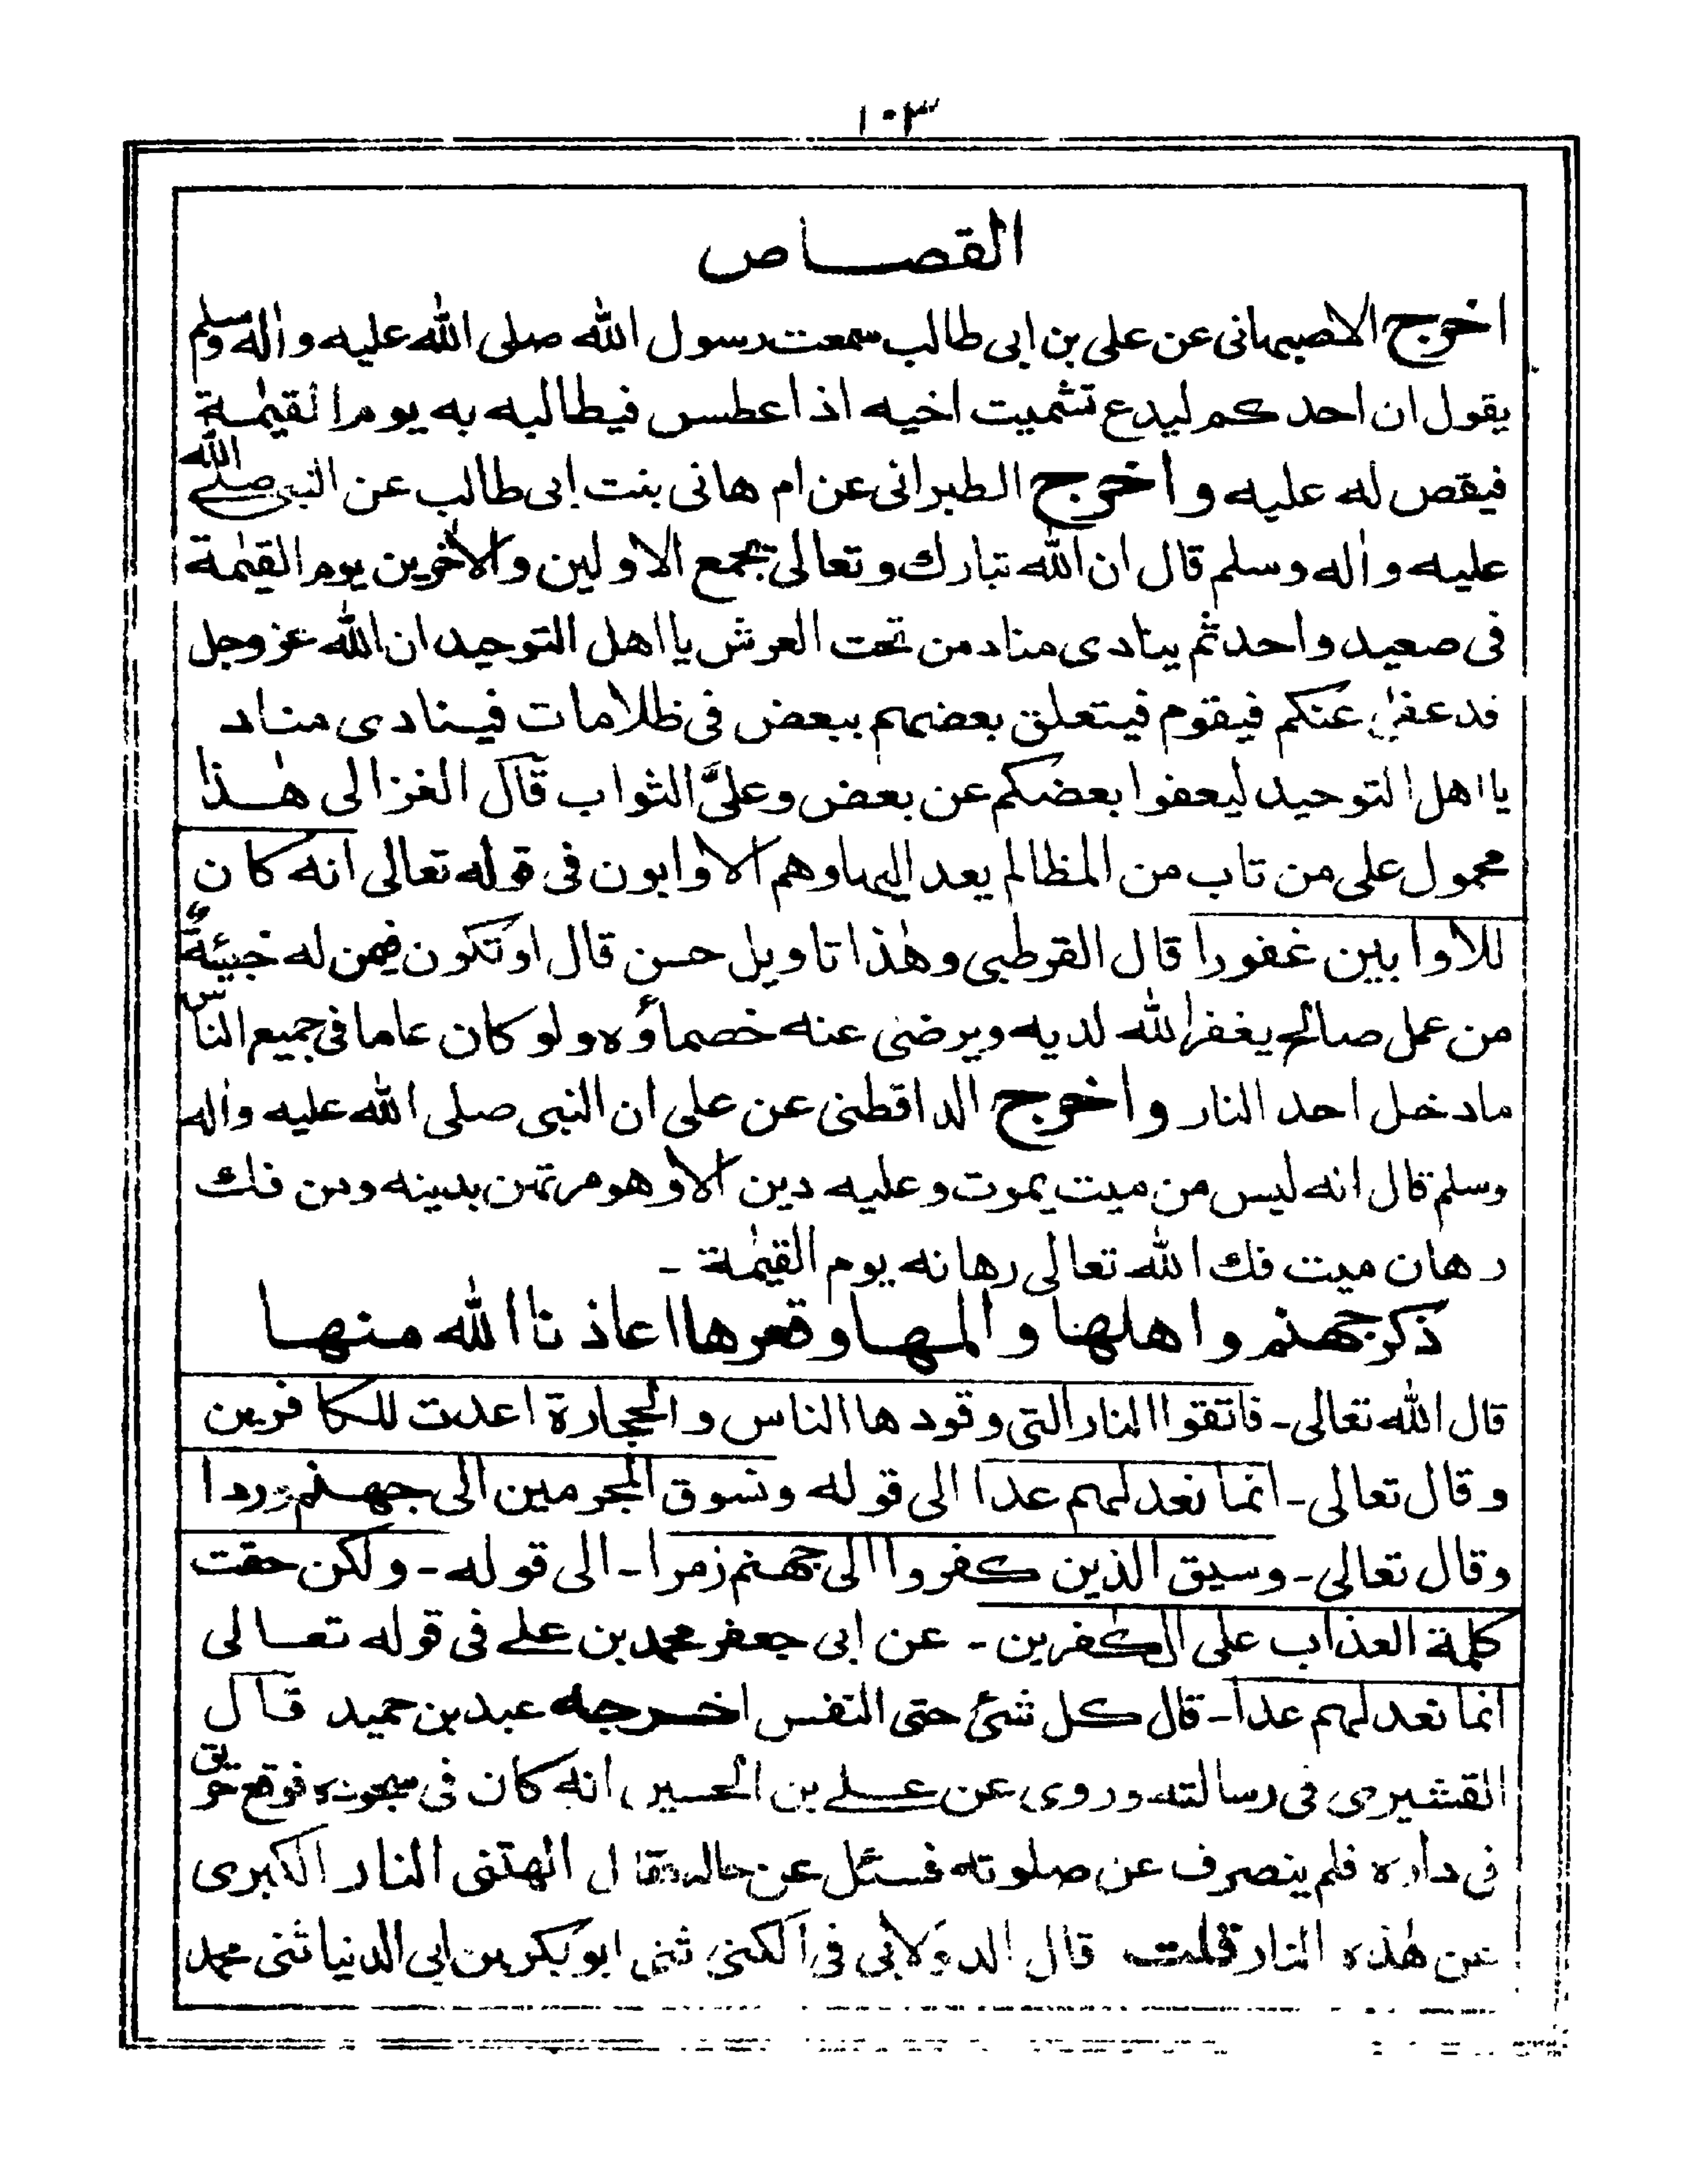 ١٠٣
القصاص
اخرج الاصبهانى عن على بن ابى طالب سمعت رسول الله صلى الله عليه واٰله وسلم
يقول ان احدكم ليدع تشميت اخيه اذا عطس فيطالبه به يوم القيٰمة
فيقص له عليه واخرج الطبرانى عن ام هانى بنت ابى طالب عن النبى صلے الله
عليه واٰله وسلم قال ان الله تبارك وتعالى يجمع الاولين والاٰخرين يوم القيٰمة
فى صعيد واحد ثم ينادى مناد من تحت العرش يا اهل التوحيد ان الله عز وجل
قد عفىٰ عنكم فيقوم فيتعلق بعضهم ببعض فى ظلامات فينادى مناد
يا اهل التوحيد ليعفوا بعضكم عن بعض وعلىَّ الثواب قال الغزالى هٰذا
محمول على من تاب من المظالم يعد اليها وهم الاوابون فى قوله تعالى انه كان
للاوابين غفورا قال القرطبى وهٰذا تاويل حسن قال او تكون فيمن له خبيئةً
من عمل صالح يغفر الله لديه ويرضى عنه خصماؤه ولو كان عاما فى جميع الناس
ما دخل احد النار واخرج الداقطنى عن على ان النبى صلى الله عليه واٰله
وسلم قال انه ليس من ميت يموت وعليه دين الا وهو مرتهن بدينه ومن فك
رهان ميت فك الله تعالى رهانه يوم القيٰمة -
ذكر جهنم واهلها والمها وقعرها اعاذنا الله منها
قال الله تعالى - فاتقوا النار التى وقودها الناس والحجارة اعدت للكافرين
وقال تعالى - انما نعد لهم عدا الى قوله ونسوق المجرمين الى جهنم وردا
وقال تعالى - وسيق الذين كفروا الى جهنم زمرا - الى قوله - ولكن حقت
كلمة العذاب على الكٰفرين - عن ابى جعفر محمد بن علے فى قوله تعالى
انما نعد لهم عدا - قال كل شئ حتى النفس اخرجه عبد بن حميد قال
القشيرى فى رسالته وروى عن علے بن الحسين انه كان فى سجوده فوقع حريق
فى داره فلم ينصرف عن صلوته فسئل عن حاله فقال الهتنى النار الكبرى
عن هٰذه النار قلت قال الدولابى فى الكنى ثنى ابو بكر بن ابى الدنيا ثنى محمد